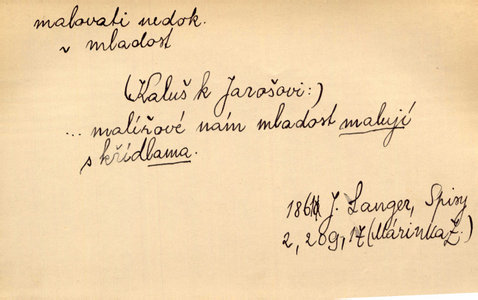 malovati nedok.
v mladost
(Kaluš k Jarošovi:)
... malířové nám mladost malují
s křídlama.
1861 J. Langer, Spisy
2, 209, 17 (Márinka Ž.)